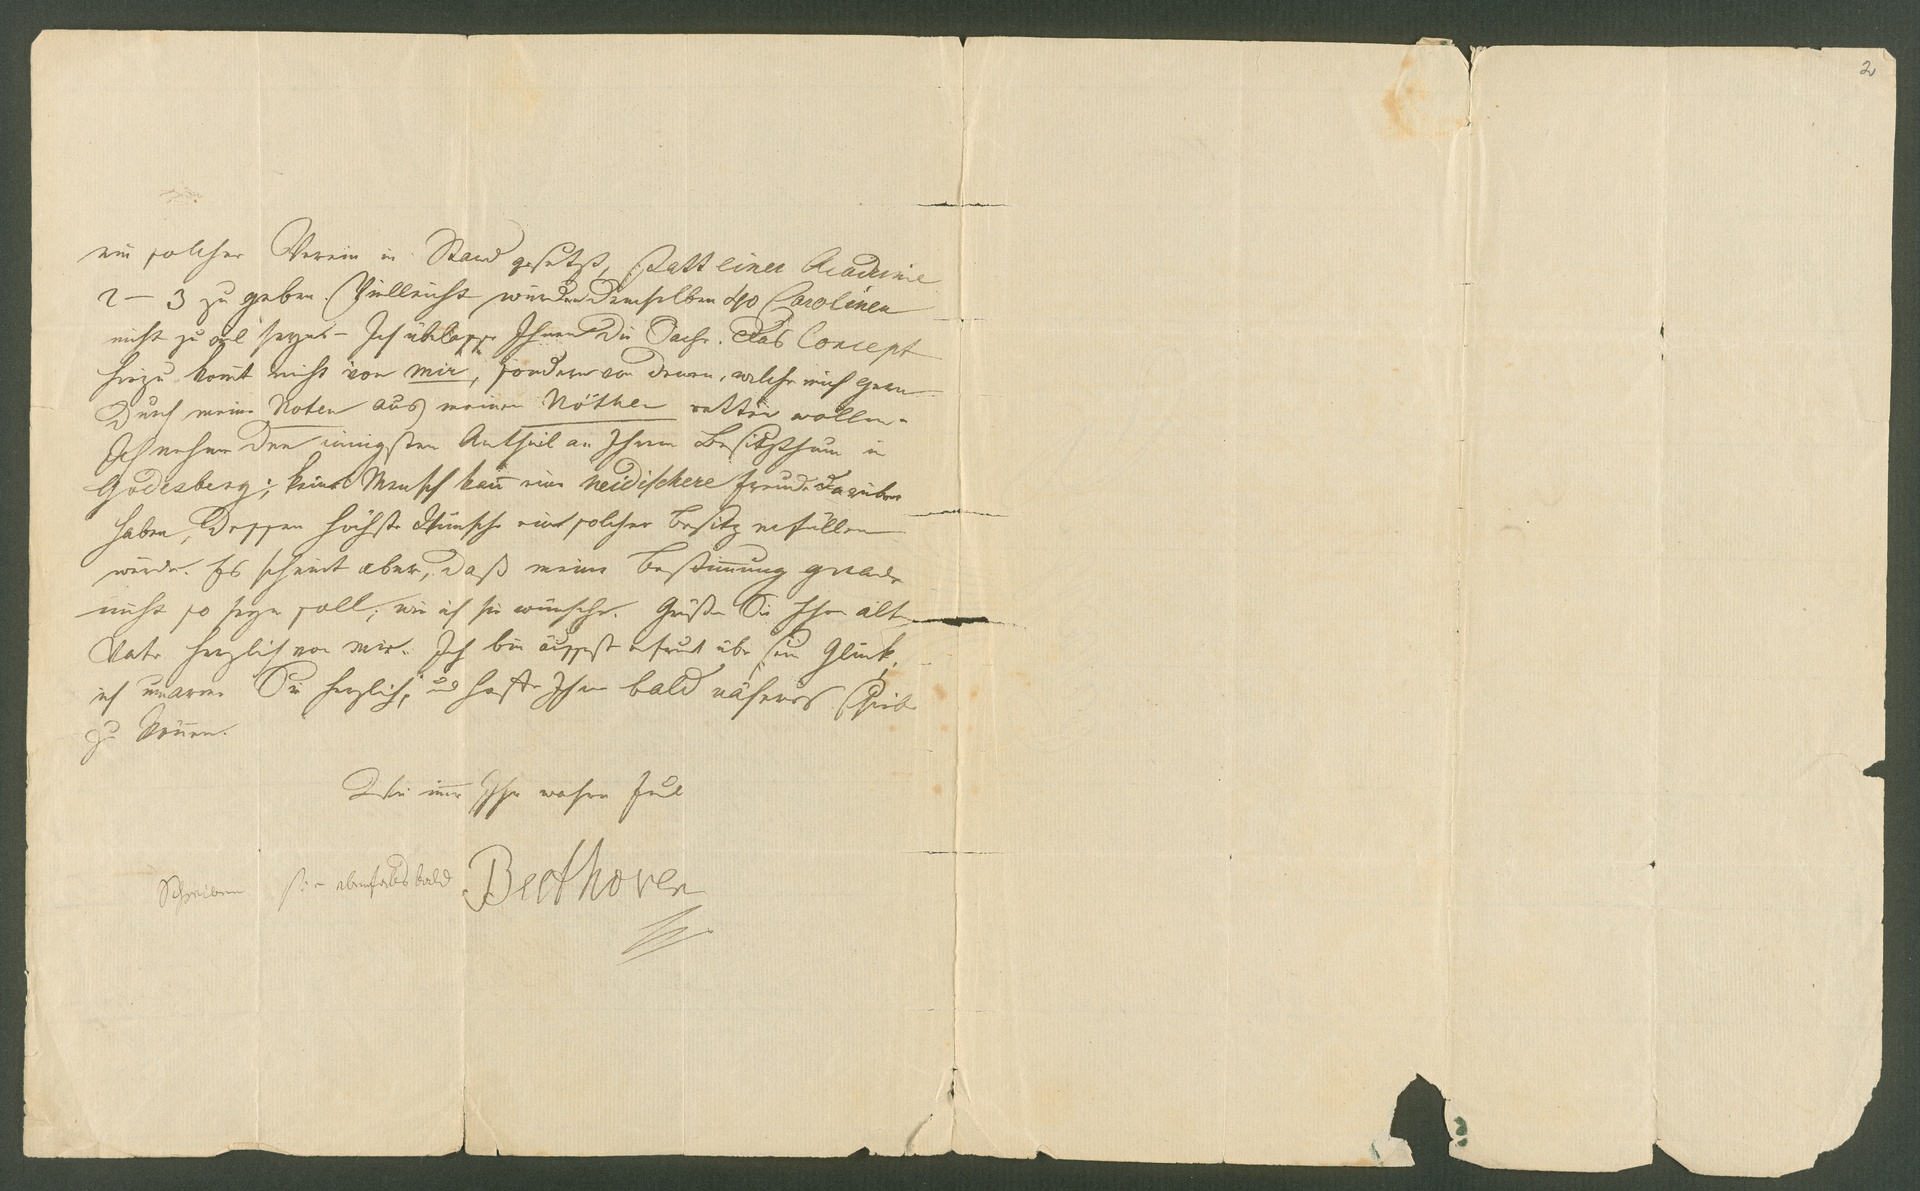 2
ein solcher Verein in Stand gesetzt, statt einer Academie
2 – 3 zu geben. Vielleicht würden demselben 40 Carolinen
nicht zu viel seyn – Ich überlasse Ihnen die Sache. Das Concept
hiezu komt nicht von mir, sondern von denen, welche mich gern
durch meine Noten aus meinen Nöthen retten wollen.
Ich nehme den innigsten Antheil an Ihrem Besitzthum in
Godesberg; kein Mensch kann eine neidischere Freude darüber
haben, dessen höchste Wünsche ein solcher Besitz erfüllen
würde. Es scheint aber, daß meine Bestimmung grade
nicht so seyn soll, wie ich sie wünsche. Grüßen Sie Ihren alten
Vater herzlich von mir. Ich bin äusserst erfreut über sein Glück,
ich umarme Sie herzlich, und hoffe Ihnen bald näheres schreiben
zu können.
Wie immer Ihr wahrer Freund
Schreiben sie ebenfalls bald Beethoven